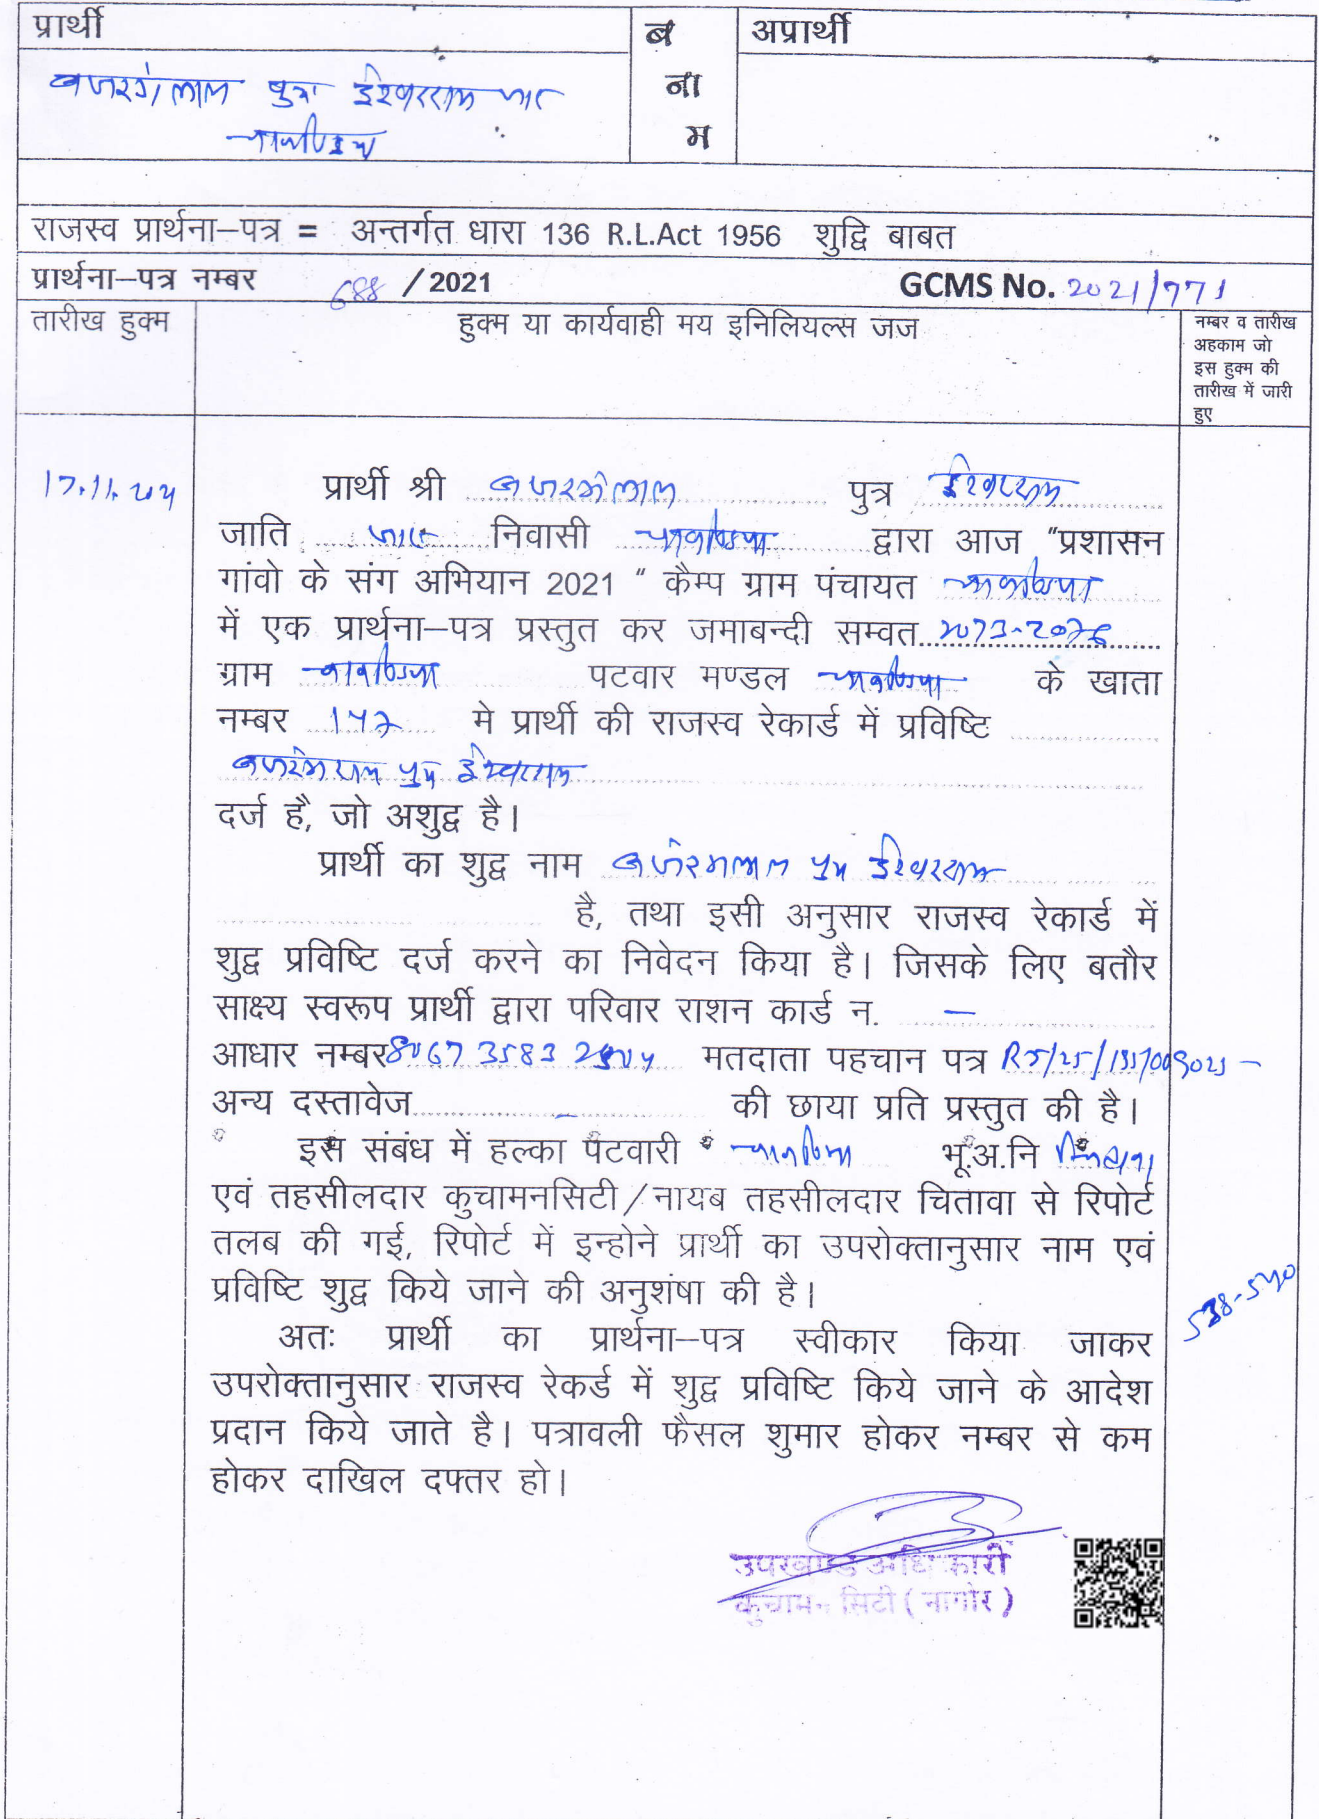 प्रार्थी
ब
ना
म
अप्रार्थी
पुत्र ईश्वरराम जाट
राजस्व प्रार्थना–पत्र = अन्तर्गत धारा 136 R.L.Act 1956 शुद्वि बाबत
प्रार्थना–पत्र नम्बर 688 / 2021 GCMS No. 2021/771
तारीख हुक्म
हुक्म या कार्यवाही मय इनिलियल्स जज
नम्बर व तारीख
अहकाम जो
इस हुक्म की
तारीख में जारी
हुए
प्रार्थी श्री पुत्र ईश्वरराम
जाति जाट निवासी द्वारा आज “प्रशासन
गांवो के संग अभियान 2021 “ कैम्प ग्राम पंचायत
में एक प्रार्थना–पत्र प्रस्तुत कर जमाबन्दी सम्वत 2073-2076
ग्राम पटवार मण्डल के खाता
नम्बर मे प्रार्थी की राजस्व रेकार्ड में प्रविष्टि
पुत्र ईश्वरराम
दर्ज है, जो अशुद्व है।
प्रार्थी का शुद्व नाम पुत्र ईश्वरराम
है, तथा इसी अनुसार राजस्व रेकार्ड में
शुद्व प्रविष्टि दर्ज करने का निवेदन किया है। जिसके लिए बतौर
साक्ष्य स्वरूप प्रार्थी द्वारा परिवार राशन कार्ड न. –
आधार नम्बर मतदाता पहचान पत्र
अन्य दस्तावेज – की छाया प्रति प्रस्तुत की है।
इस संबंध में हल्का पटवारी भू.अ.नि
एवं तहसीलदार कुचामनसिटी/नायब तहसीलदार चितावा से रिपोर्ट
तलब की गई, रिपोर्ट में इन्होने प्रार्थी का उपरोक्तानुसार नाम एवं
प्रविष्टि शुद्व किये जाने की अनुशंषा की है।
अतः प्रार्थी का प्रार्थना–पत्र स्वीकार किया जाकर
उपरोक्तानुसार राजस्व रेकर्ड में शुद्व प्रविष्टि किये जाने के आदेश
प्रदान किये जाते है। पत्रावली फैसल शुमार होकर नम्बर से कम
होकर दाखिल दफ्तर हो।
538-540
उपखण्ड अधिकारी
कुचामन सिटी ( नागौर )